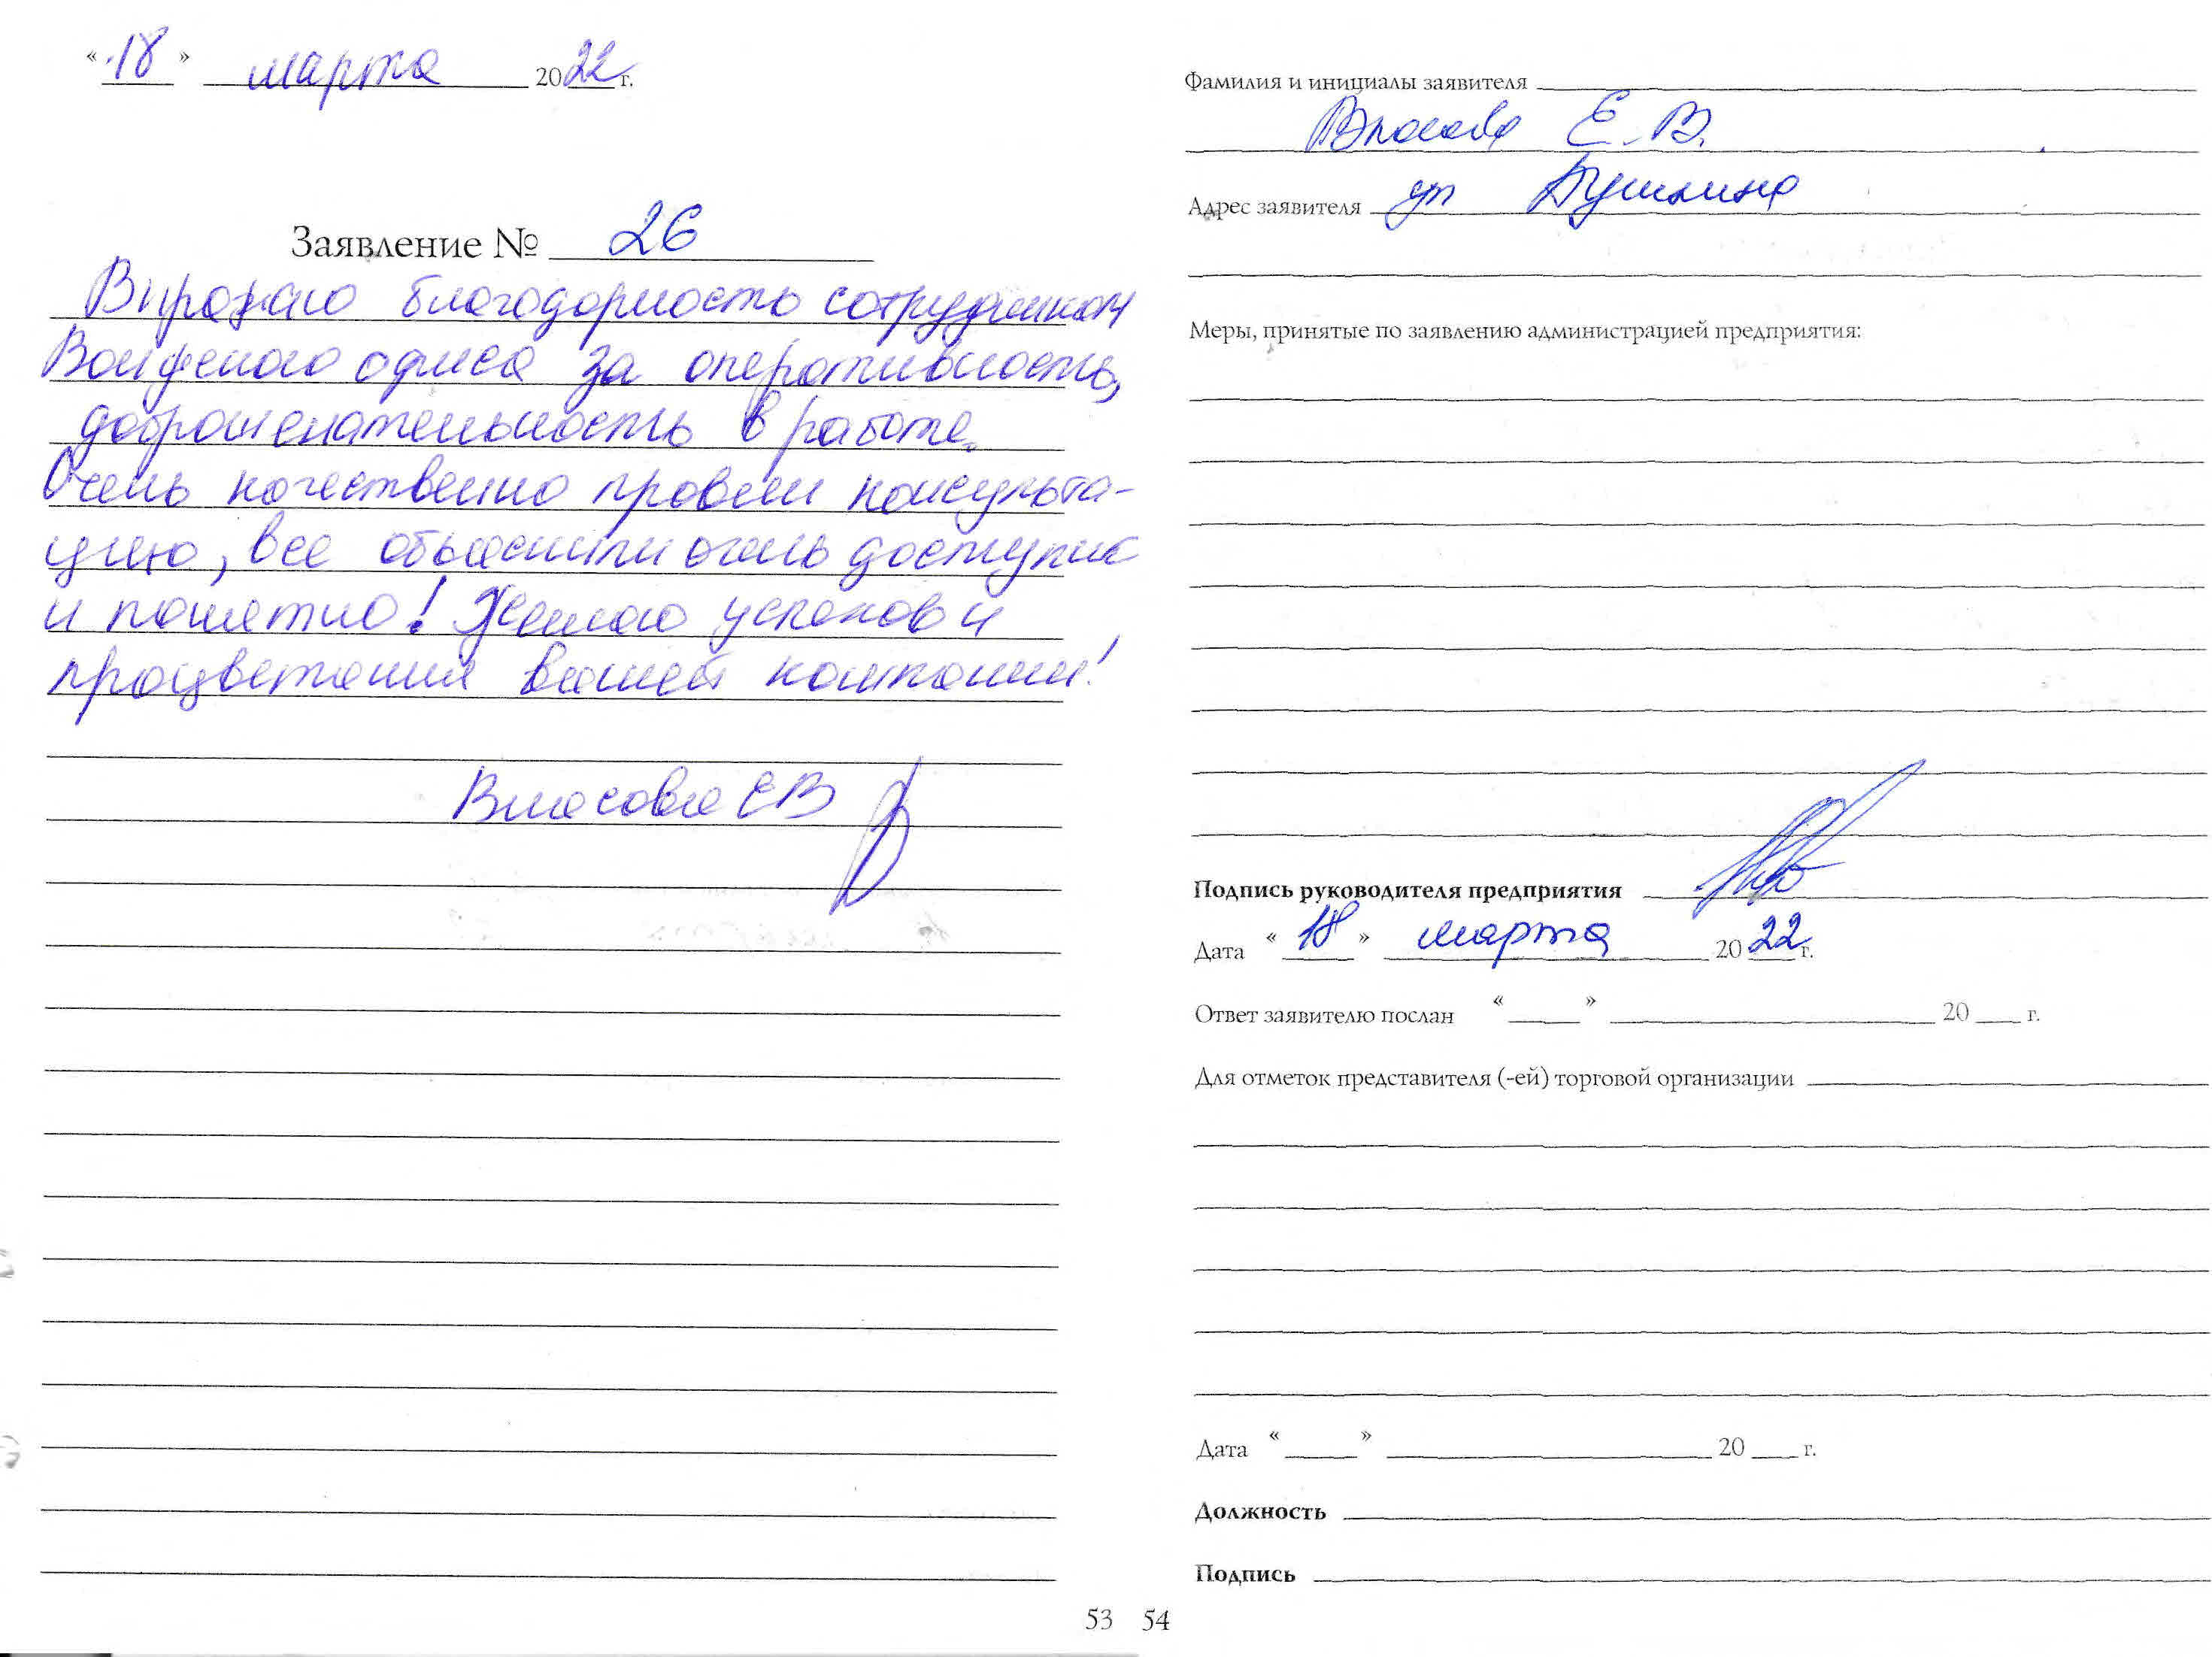 « 18 » марта 2022 г.
Заявление № 26
Выражаю благодарность сотрудникам
офиса за оперативность,
доброжелательность в работе.
Очень качественно провели консульта-
цию, все объяснили очень доступно
и понятно! Желаю успехов и
процветания вашей компании!
Власова ЕВ
53
Фамилия и инициалы заявителя
Власова Е.В.
Адрес заявителя ул Пушкина
Меры, принятые по заявлению администрацией предприятия:
Подпись руководителя предприятия
Дата « 18 » марта 2022 г.
Ответ заявителю послан « » 20 г.
Для отметок представителя (-ей) торговой организации
Дата « » 20 г.
Должность
Подпись
54